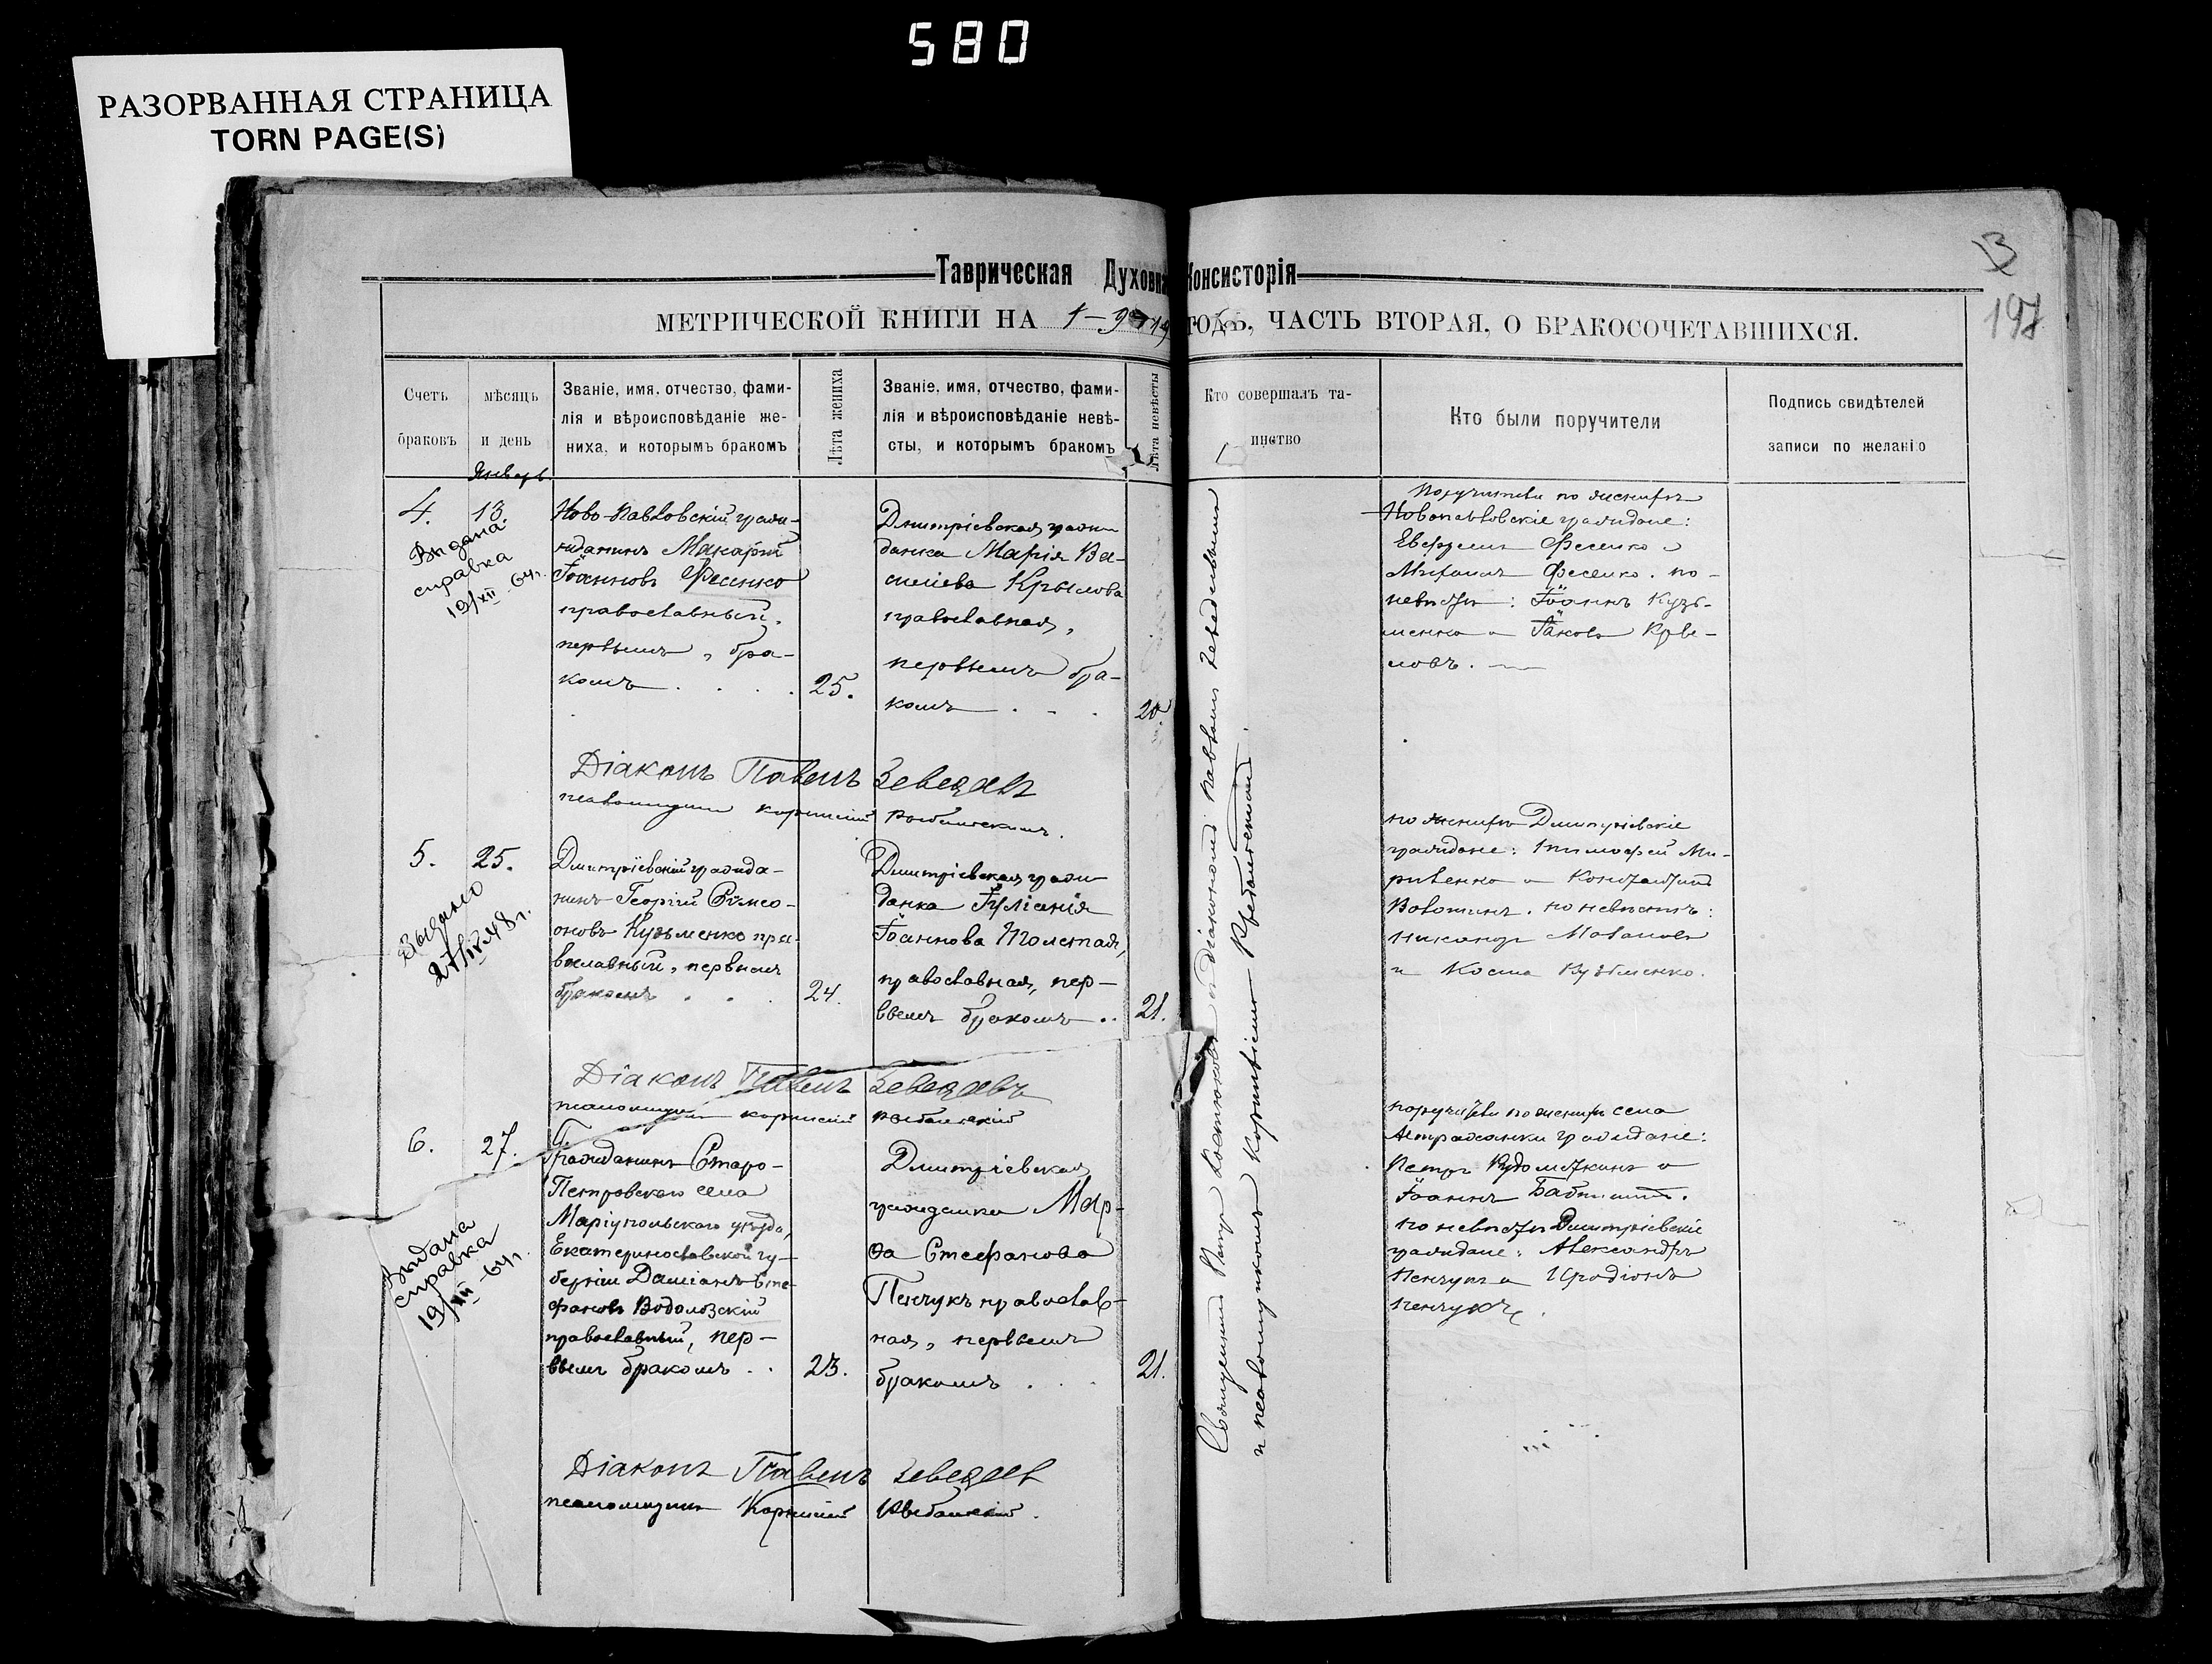 580
РАЗОРВАННАЯ СТРАНИЦА
TORN PAGE(S)
3
197
Таврическая Духовна Консисторія
МЕТРИЧЕСКОЙ КНИГИ НА 1-919 ГОДЪ, ЧАСТЬ ВТОРАЯ, О БРАКОСОЧЕТАВШИХСЯ.
Счетъ
браковъ
мѣсяцъ
и день
Званіе, имя, отчество, фами-
лія и вѣроисповѣданіе же-
ниха, и которымъ бракомъ
Лѣта жениха
Званіе, имя, отчество, фами-
лія и вѣроисповѣданіе невѣ-
сты, и которымъ бракомъ
Лѣта невѣсты
Кто совершалъ та-
инство
Кто были поручители
Подпись свидѣтелей
записи по желанію
Январь
4.
13.
Выдана
справка
19/XII-64г.
Ново-Павловскій граж-
данинъ Макарій
Іоанновъ Фесенко
православный,
первымъ бра-
комъ
25.
Дмитріевская граж
данка Марія Ва-
сильева Крылова
православная,
первымъ бра-
комъ
20.
Поручители по женихѣ
Новопавловскіе граждане:
Фесенко и
Михаилъ Фесенко. по
невѣстѣ: Іоаннъ Кузь-
менко и Іаковъ Кры-
ловъ.
Діаконъ Павелъ Зеведѣевъ
псаломщикъ Корнилій
5.
25.
Выдано
27/IV 48г.
Дмитріевскій гражда-
нинъ Георгій Сѵмео-
новъ Кузьменко пра-
вославный, первымъ
бракомъ
24.
Дмитріевская граж
данка Іуліанія
Іоаннова Толстая,
православная, пер-
вымъ бракомъ
21.
по женихѣ Дмитріевскіе
граждане: Тимофей Ми-
ривенко и Константинъ
по невѣстѣ:
Никаноръ
и Косма Кузьменко.
Діаконъ Павелъ Зеведѣевъ
псаломщикъ Корнилій
6.
27.
Выдана
справка
19/XII-64г.
Гражданинъ Старо-
Петровскаго села
Маріупольскаго уѣзда,
Екатеринославской гу-
берніи Даміанъ Сте-
фановъ Водолозскій
православный, пер-
вымъ бракомъ
23.
Дмитріевская
гражданка Мар-
ѳа Стефанова
Пенчукъ православ-
ная, первымъ
бракомъ
21.
поручители по женихѣ села
Астраханки граждане:
Петръ и
Іоаннъ
по невѣстѣ Дмитріевскіе
граждане: Александръ
Пенчукъ и Иродіонъ
Пенчукъ.
Діаконъ Павелъ Зеведѣевъ
псаломщикъ Корнилій
Священникъ Петръ Костюковъ и діакономъ Павломъ Зеведѣевымъ
и псаломщикомъ Корниліемъ